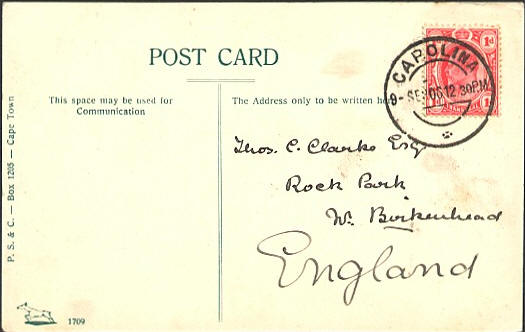 POST CARD
This space may be used for
Communication
The Address only to be written here
Thos. C. Clarke Esq
Rock Park
Nr. Birkenhead
England
CAROLINA
12 30PM
1d
P. S. & C. — Box 1205 — Cape Town
1709